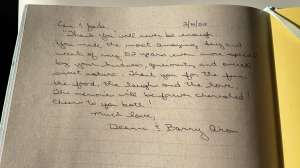 "Thank You" will never be enough.
You made the most amazing day and
week of my 50 years even more special
by your kindness, generosity and
sweet nature. Thank you for the fun,
the food, the laughs and the love.
The memories will be forever cherished!
Cheers to you both!
Much love,
& Barry